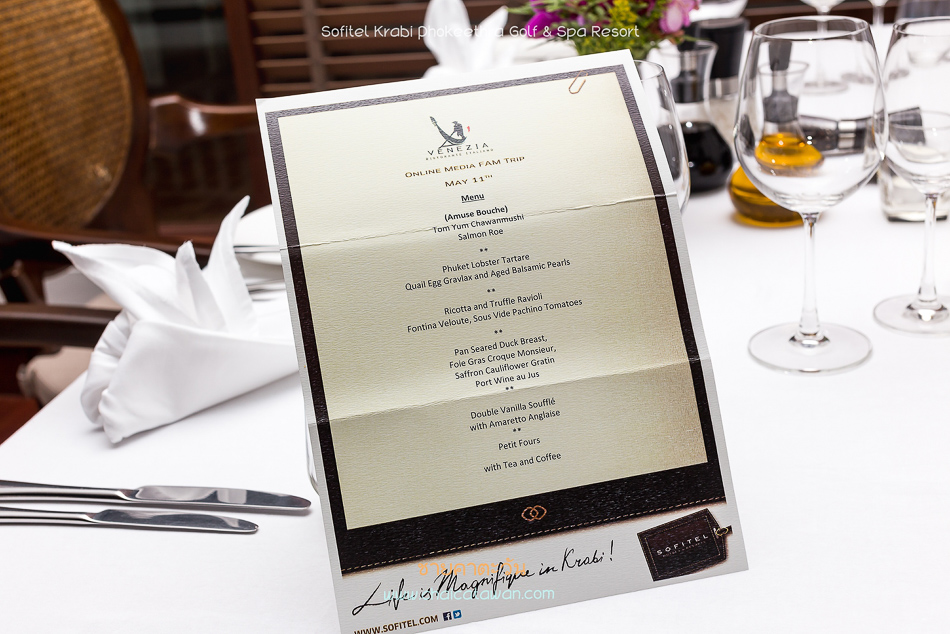 Sofitel Krabi Phokeethra Golf & Spa Resort
VENEZIA
RISTORANTE ITALIANO
ONLINE MEDIA FAM TRIP
MAY 11TH
Menu
(Amuse Bouche)
Tom Yum Chawanmushi
Salmon Roe
**
Phuket Lobster Tartare
Quail Egg Gravlax and Aged Balsamic Pearls
**
Ricotta and Truffle Ravioli
Fontina Veloute, Sous Vide Pachino Tomatoes
**
Pan Seared Duck Breast,
Foie Gras Croque Monsieur,
Saffron Cauliflower Gratin
Port Wine au Jus
**
Double Vanilla Soufflé
with Amaretto Anglaise
**
Petit Fours
with Tea and Coffee
SOFITEL
Life is Magnifique in Krabi !
ชายคาตะวัน
www.chaicatawan.com
WWW.SOFITEL.COM